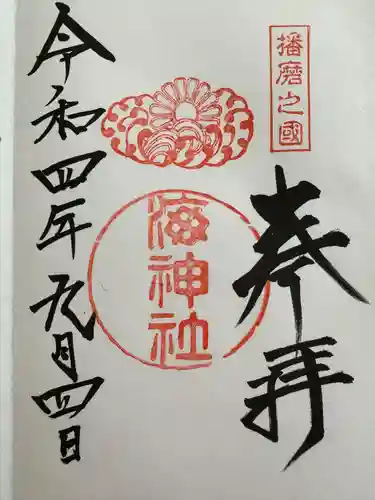 播磨之國
奉拝
海神社
令和四年九月四日